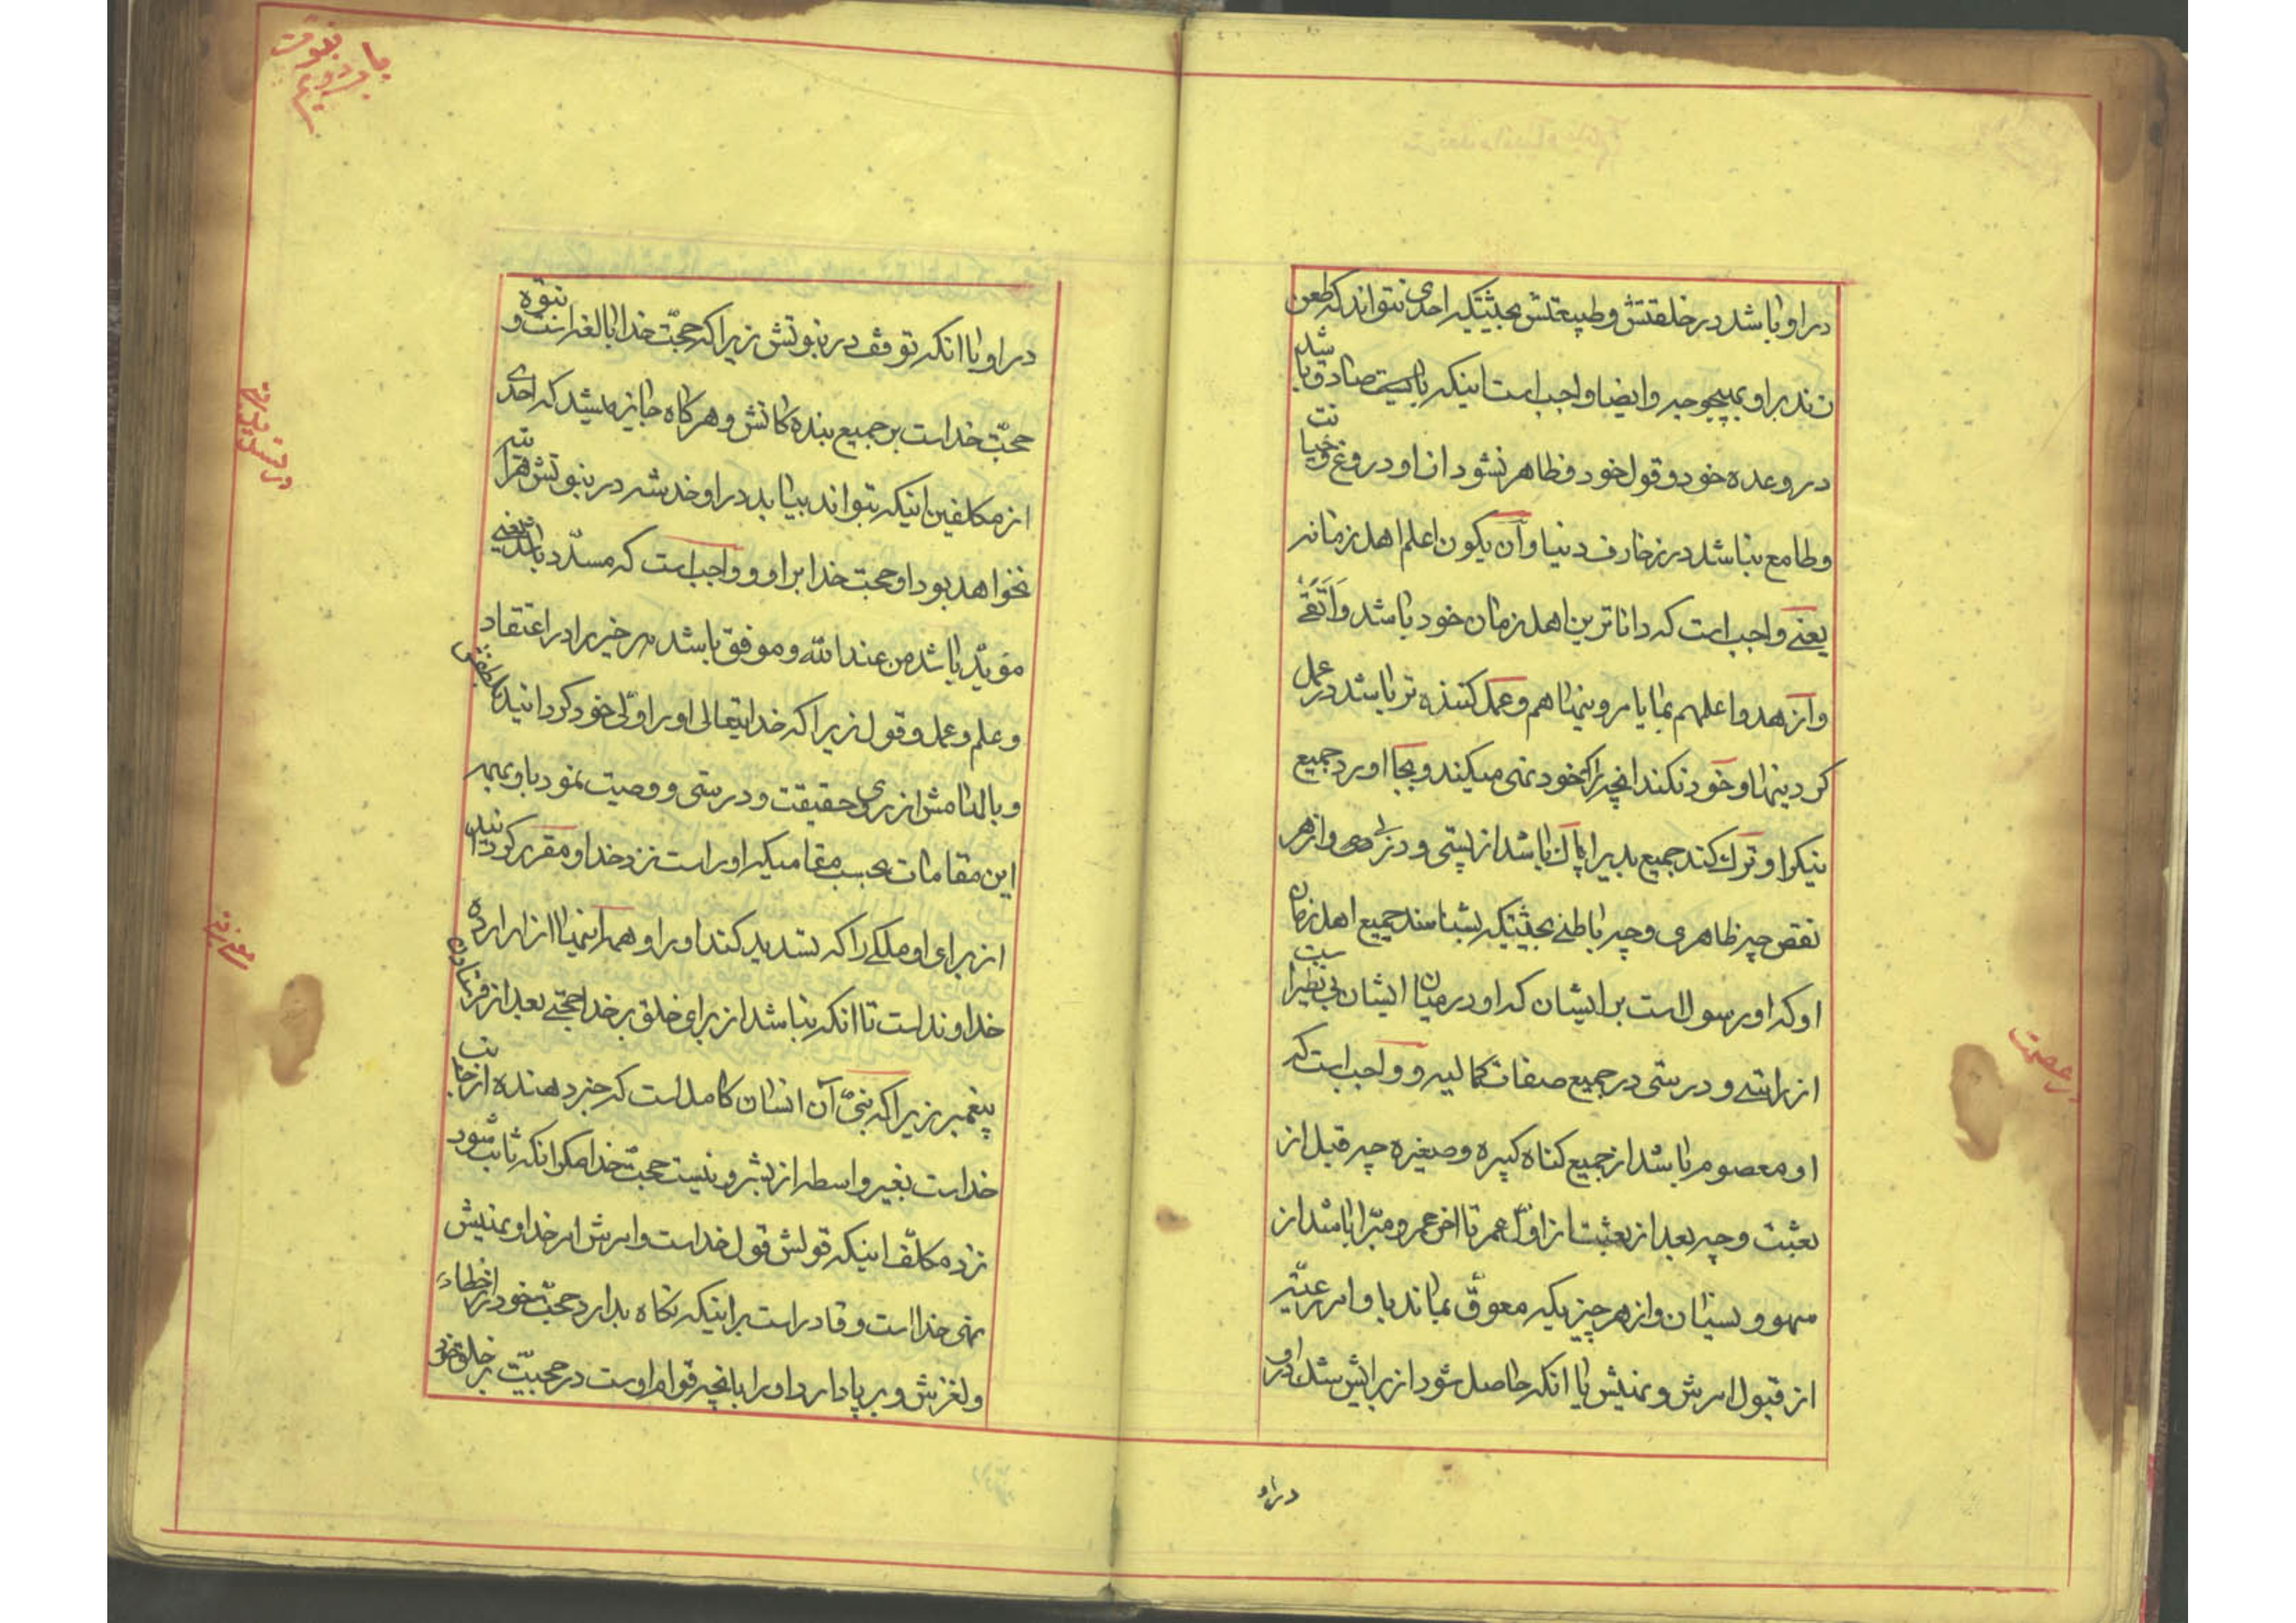 در او باشد در خلقتش و طبیعتش بحیثیتیکه احدی نتواند که طعن
زند بر او بهیچوجه و ایضا واجب است اینکه بایست صادق باشد
در وعده خود و قول خود و ظاهر نشود از او دروغ و خیانت
و طامع نباشد در زخارف دنیا و آن یکون اعلم اهل زمانه
یعنے واجب است که داناترین اهل زمان خود باشد و اَتقَی
و ازهد و اعلمهم بما یامر و ینهاهم و عمل کننده تر باشد در عمل
کردینها و خود نکند انچه را که خود نهی میکند و بجا اورد جمیع
نیکرا و ترک کند جمیع بدیرا پاک باشد از پستی و دزدی و از هر
نقص چه ظاهری و چه باطنے بحیثیتیکه بشناسند جمیع اهل زمان
او که او رسول است بر ایشان که او در میان ایشان بی نظیر است
از راستے و درستی در جمیع صفات کمالیه و واجب است که
او معصوم باشد از جمیع کناه کبیره و صغیره چه قبل از
بعثت و چه بعد از بعثت از اوّل عمر تا اخر عمر و مبّرا باشد از
سهو و نسیان و از هر چیزیکه معوّق بماند باو امر رعیّتیر
از قبول امرش و نهیش یا انکه حاصل شود از برایش شک در او
در او
عصمت
باب دویم
نبوت
در او یا انکه توقف در نبوتش زیرا که حجّت خدا بالغه است و نبوّة
حجّت خداست بر جمیع بنده کانش و هر کاه جایز باشد که احدی
از مکلفین اینکه بتواند بیابد در او خدشه در نبوتش هر آینه
نخواهد بود او حجت خدا بر او و واجب است که مسدّد باشد یعنے
مؤیّد باشد من عند الله و موفق باشد هر خیر را در اعتقاد
و علم و عمل و قول زیرا که خدایتعالی او را ولّی خود کردانید بلطفش
و بالهامش از روی حقیقت و درستی و وصیت نمود باو بهمه
این مقامات بحسب مقامیکه او راست نزد خدا و مقرر کردانیده
از برای او ملکے را که تسدید کند او را و همه اینها از اراده
خداوند است تا انکه نباشد از برای خلق بر خدا حجّتے بعد از فرستادن
پیغمبر زیرا که نبیّ آن انسان کامل است که خبر دهنده از جانب
خداست بغیر واسطه از بشر و نیست حجّت خدا مکر انکه ثابت شود
نزد مکلّف اینکه قولش قول خداست و امرش امر خدا و نهیش
نهی خدا است و قادر است بر اینکه نکاه بدارد حجّت خود را از خطاء
و لغزش و بر پا دارد او را بانچه قوام اوست در حجیّت بر خلق خود